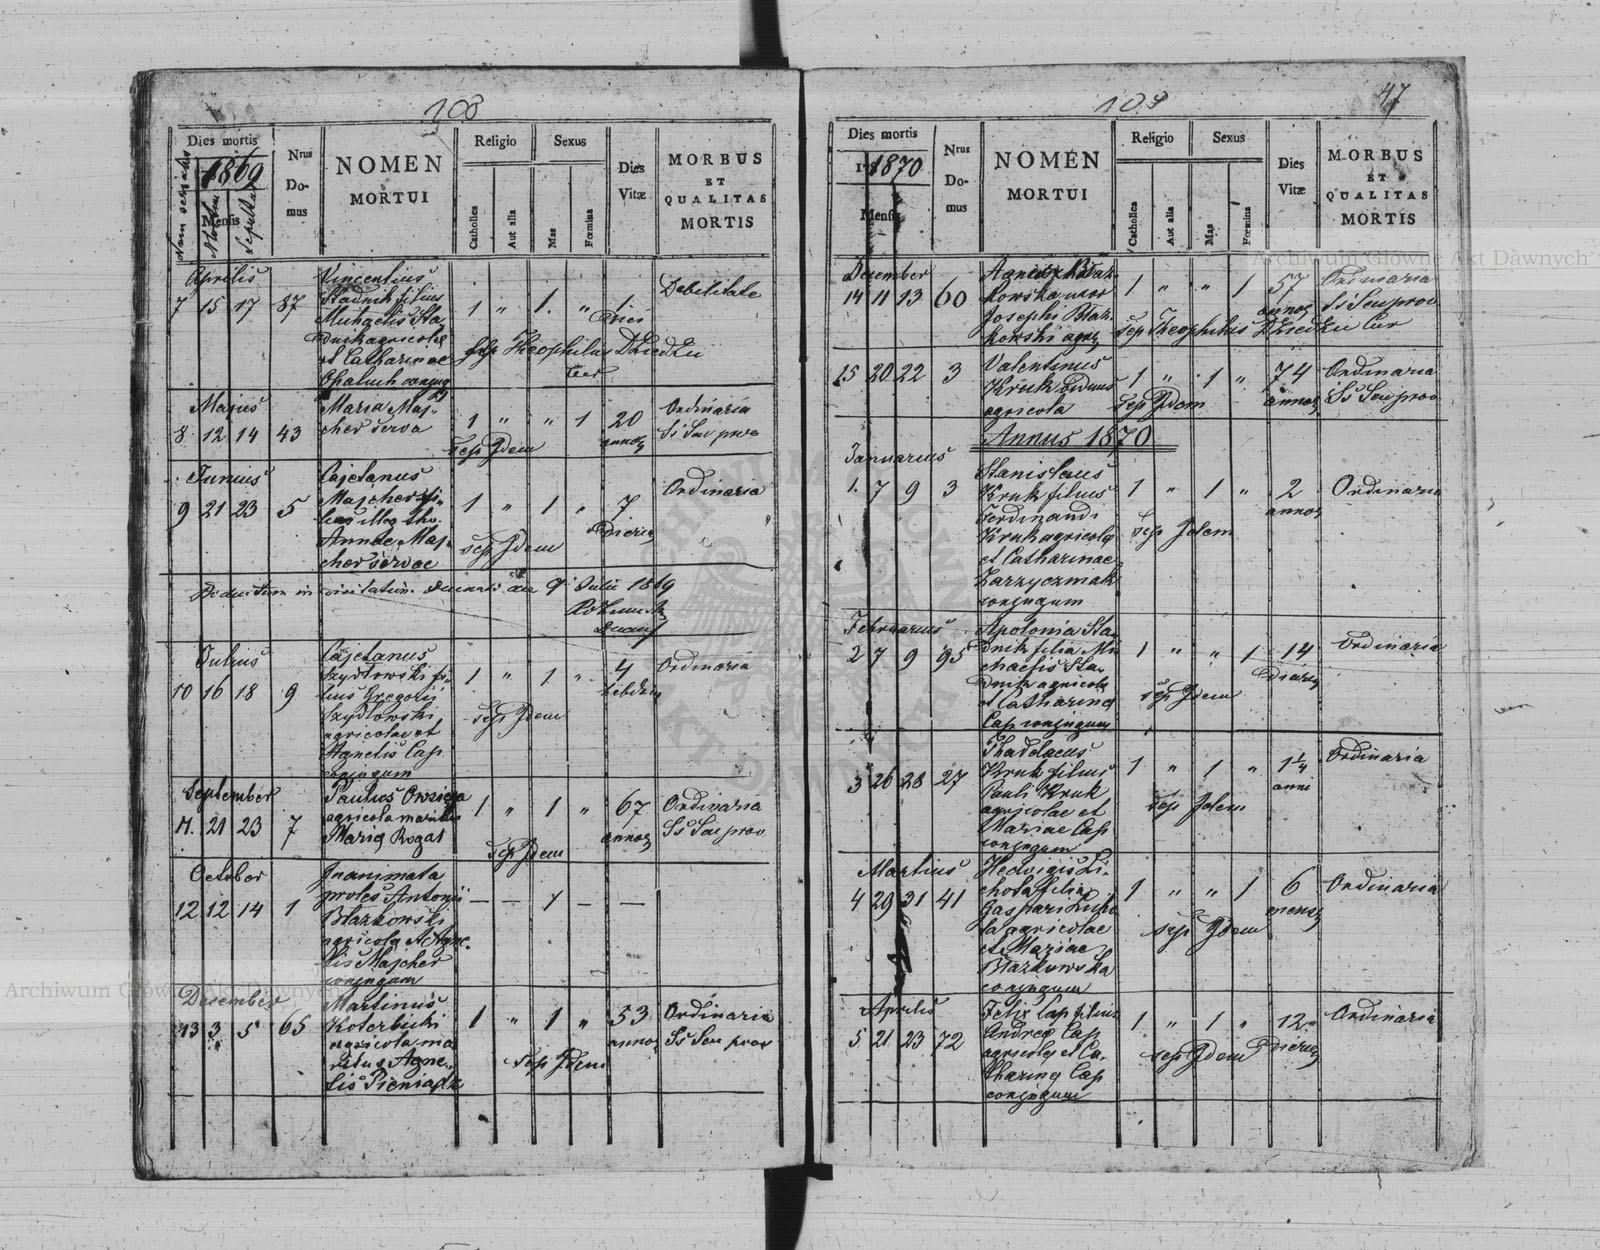 108
Dies mortis
1869
Mensis
Nrus
Do-
mus
NOMEN
MORTUI
Religio
Catholica
Aut alia
Sexus
Mas
Fœmina
Dies
Vitæ
MORBUS
ET
QUALITAS
MORTIS
Aprilis
7 15 17 87
Vincentius
Stadnik filius
Michaelis Sta-
dnik agricolae
et Catharinae
Opaluch conjug
1 " 1. " 1
Diei
Debilitate
Sep Theophilus Dziedzic
Cur
Majus
8 12 14 43
Maria Maj-
cher serva
1 " " 1 20
annor
Ordinaria
Sep Idem
Junius
9 21 23 5
Cajetanus
Majcher fi-
lius illeg tho.
Annae Maj-
cher servae
1 " 1 " 7
dierum
Ordinaria
Sep Idem
in visitatione 9 Julii 1869
Julius
10 16 18 9
Cajetanus
Szydłowski fi-
lius Gregorii
Szydłowski
agricolae et
Agnetis Cap
conjugum
1 " 1 " 4
Ordinaria
Sep Idem
September
11. 21 23 7
Paulus
agricola maritus
Maria Rogal
1 " 1 " 67
annor
Ordinaria
Sep Idem
October
12 12 14 1
Inanimata
proles Antonii
Błazkowski
agricola et Agne-
tis Majcher
conjugum
— — 1 — —
December
13 3 5 65
Martinus
Koterbicki
agricola ma
ritus Agne-
tis Pieniądz
1 " 1 " 53
annor
Ordinaria
Sep Idem
109
47
Dies mortis
1870
Mensis
Nrus
Do-
mus
NOMEN
MORTUI
Religio
Catholica
Aut alia
Sexus
Mas
Fœmina
Dies
Vitæ
MORBUS
ET
QUALITAS
MORTIS
December
14 11 13 60
Agnes Błaz-
kowska uxor
Josephi Błaz-
kowski agric
1 " " 1 57
annor
Ordinaria
Sep Theophilus Dziedzic Cur
15 20 22 3
Valentinus
Kruk viduus
agricola
1 " 1 " 74
annor
Ordinaria
Sep Idem
Annus 1870
Januarius
1. 7 9 3
Stanislaus
Kruk filius
Ferdinandi
Kruk agricola
et Catharinae
conjugum
1 " 1 " 2
annor
Ordinaria
Sep Idem
Februarius
2 7 9 95
Apolonia Sta-
dnik filia Mi
chaelis Sta-
dnik agricola
et Catharina
Cap conjugum
1 " " 1 14
Dierum
Ordinaria
Sep Idem
3 26 28 27
Thaddaeus
Kruk filius
Pauli Kruk
agricolae et
Mariae Cap
conjugum
1 " 1 " 1 1/4
anni
Ordinaria
Sep Idem
Martius
4 29 31 41
Hedvigis Li-
chota filia
Gaspari Licho
ta agricolae
et Mariae
Błazkowska
conjugum
1 " " 1 6
mens
Ordinaria
Sep Idem
Aprilis
5 21 23 72
Felix Cap filius
Andrea Cap
agricola et Ca-
tharina Cap
conjugum
1 " 1 " 12
dierum
Ordinaria
Sep Idem
Archiwum Główne Akt Dawnych
Archiwum Główne Akt Dawnych